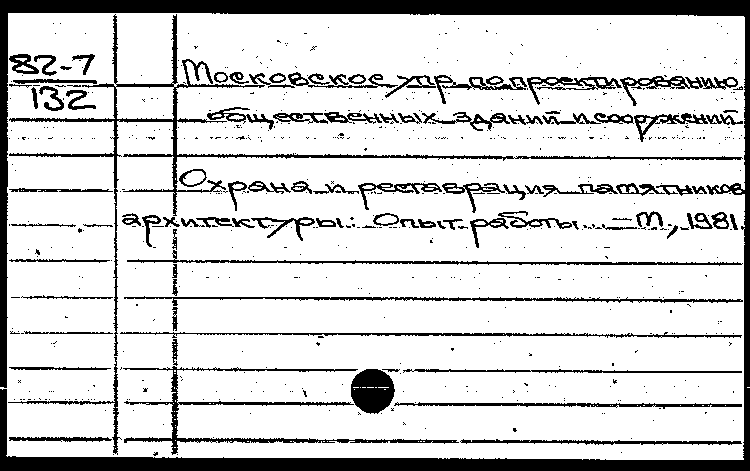 82-7
132
Московское упр. по проектированию
общественных зданий и сооружений
Охрана и реставрация памятников
архитектуры: Опыт работы... – М., 1981.